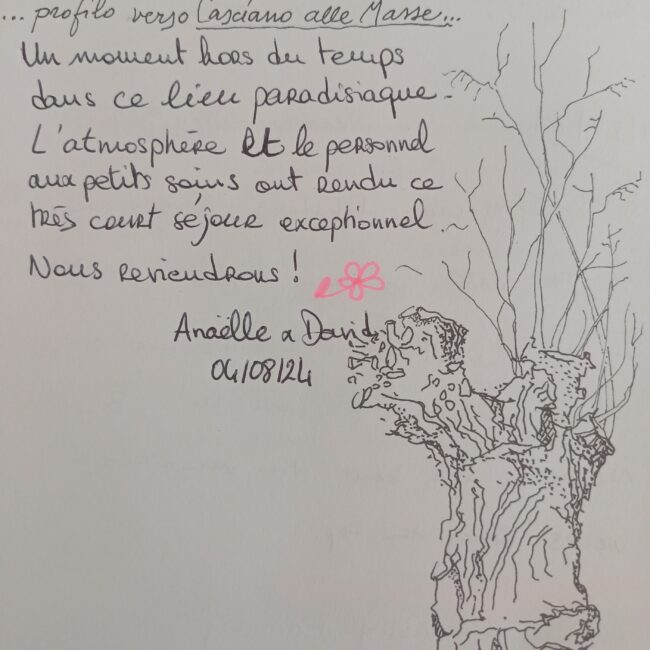 ... profilo verso Casciano alle Masse...
Un moment hors du temps
dans ce lieu paradisiaque.
L'atmosphère et le personnel
aux petits soins ont rendu ce
très court séjour exceptionnel.
Nous reviendrons !
Anaëlle & David
04/08/24